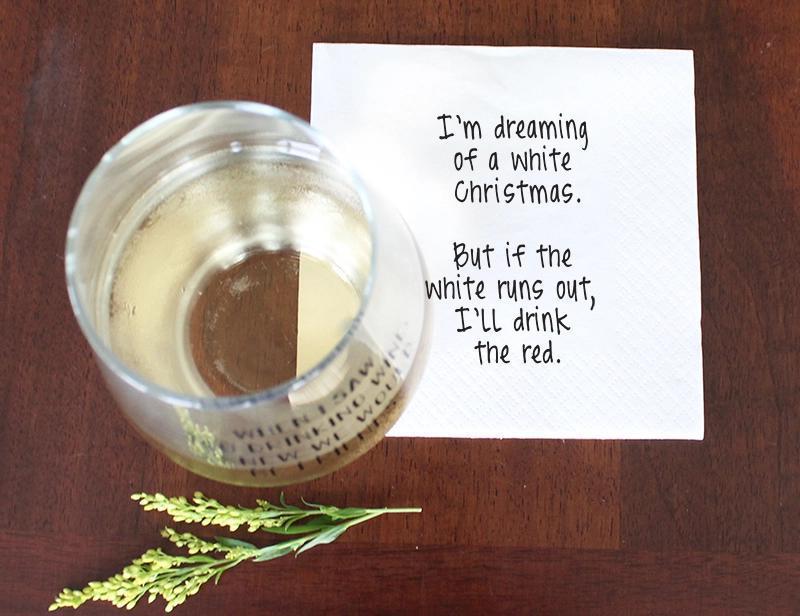 I'm dreaming
of a white
Christmas.
But if the
white runs out,
I'll drink
the red.
WHEN I SAW
DRINKING